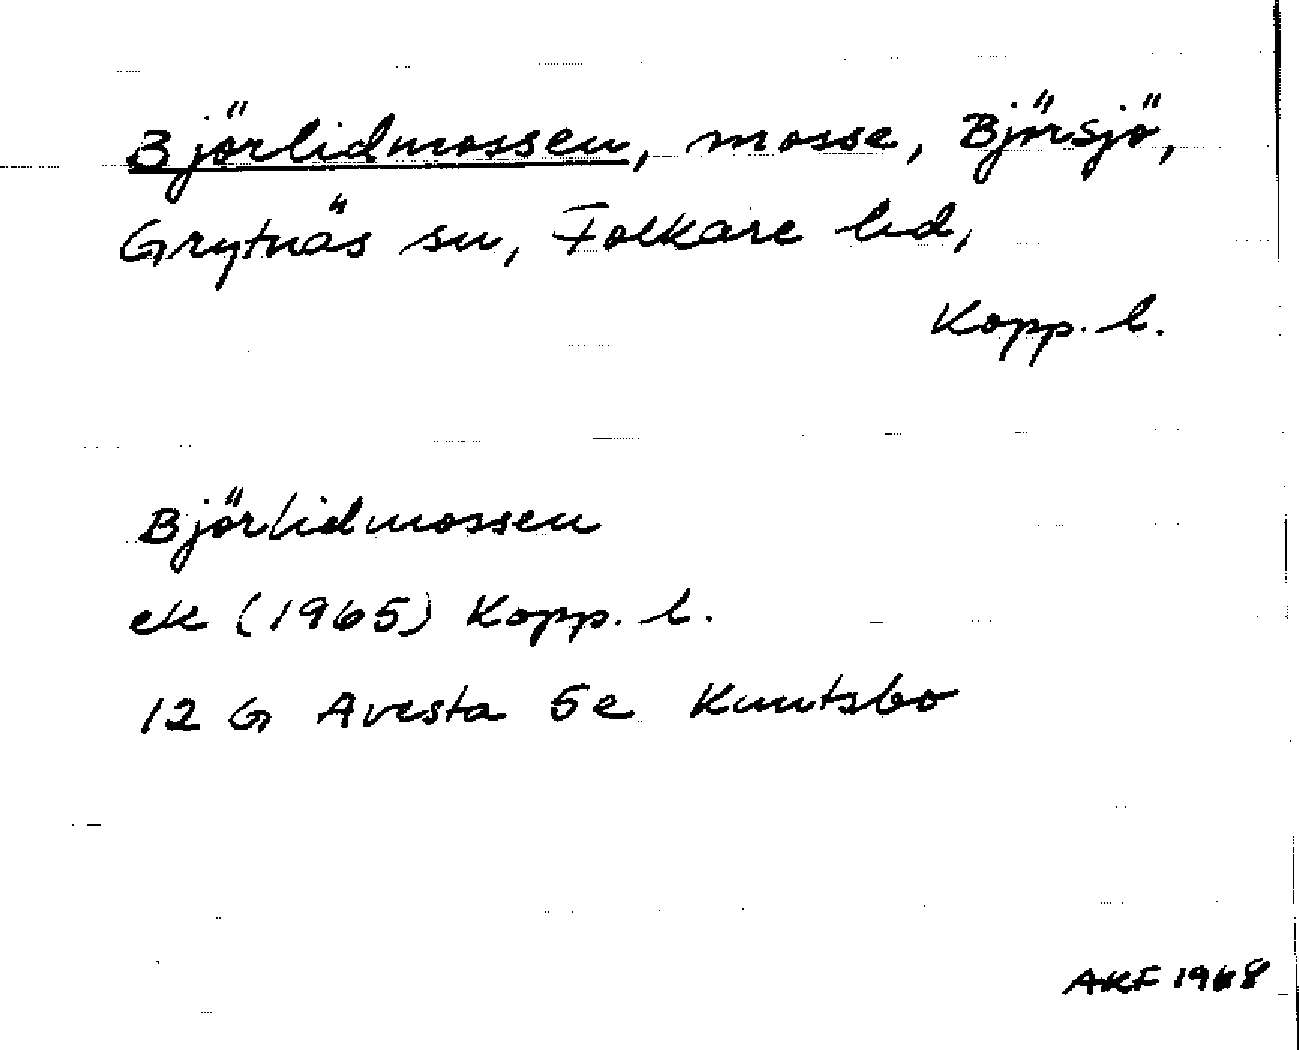 Björlidmossen, mosse, Björsjö,
Grytnäs sn, Folkare hd,
Kopp. l.
Björlidmossen
ek (1965) Kopp. l.
12 G Avesta 5e Knutsbo
AKF 1968